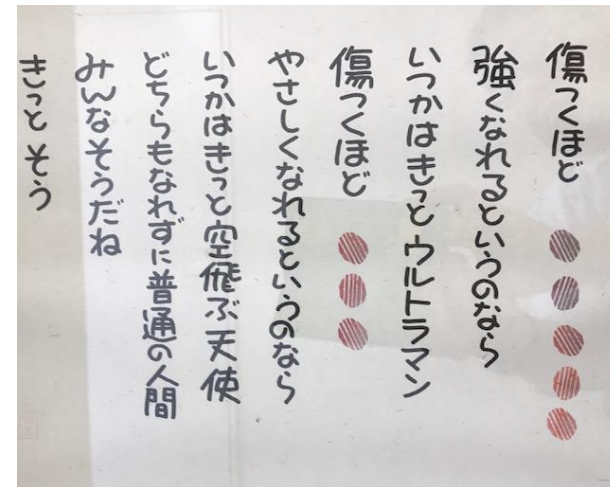 傷つくほど
強くなれるというのなら
いつかはきっとウルトラマン
傷つくほど
やさしくなれるというのなら
いつかはきっと空飛ぶ天使
どちらもなれずに普通の人間
みんなそうだね
きっとそう